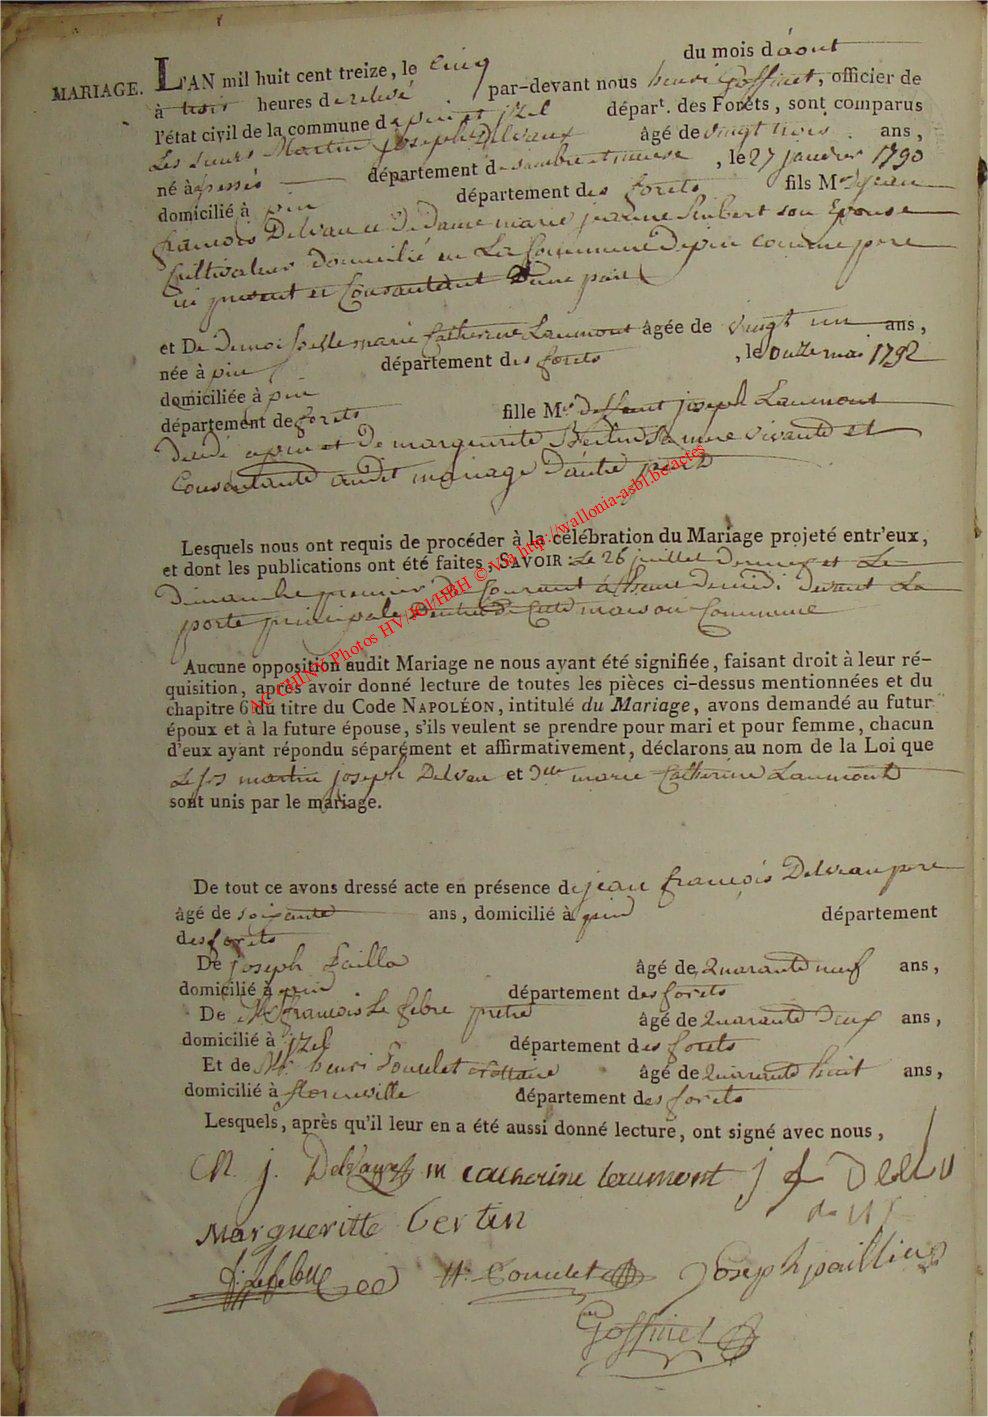 MARIAGE. L'AN mil huit cent treize, le cinq du mois d'aout
à trois heures de relevé par-devant nous henri Goffinet, officier de
l'état civil de la commune de pin et jzel départ. des Forêts, sont comparus
Les sieurs Martin joseph Delvaux âgé de vingt trois ans,
né à département de sambre et meuse, le 27 janvier 1790
domicilié à pin département des forets fils Mr. de jean
françois Delvau et De Dame marie jeanne son Epouse
Cultivateur domicilié en La Commune De pin comme pere
ici present et Consentent D'une part
et De Demoiselle marie Catherine Laumont âgée de vingt un ans,
née à pin département des forets, le onze mai 1792
domiciliée à pin
département de forets fille Mr. deffunt joseph Laumont
décédé a pin et De marguerite Bertin Sa mere vivante et
Consentante audit mariage D'autre part
Lesquels nous ont requis de procéder à la célébration du Mariage projeté entr'eux,
et dont les publications ont été faites, SAVOIR: Le 26 juillet dernier et Le
Dimanche premier Du Courant à l'heure de midi devant La
porte principale D'entrée de Cette maison Commune
Aucune opposition audit Mariage ne nous ayant été signifiée, faisant droit à leur ré-
quisition, après avoir donné lecture de toutes les pièces ci-dessus mentionnées et du
chapitre 6 du titre du Code NAPOLÉON, intitulé du Mariage, avons demandé au futur
époux et à la future épouse, s'ils veulent se prendre pour mari et pour femme, chacun
d'eux ayant répondu séparément et affirmativement, déclarons au nom de la Loi que
martin joseph Delvau et Dlle marie Catherine Laumont
sont unis par le mariage.
De tout ce avons dressé acte en présence de jean françois Delvau pere
âgé de soixante ans, domicilié à pin département
des forets
De joseph âgé de Quarante neuf ans,
domicilié à pin département des forets
De Mr françois Le febre pretre âgé de Quarante Deux ans,
domicilié à jzel département des forets
Et de Mr henri âgé de Quarante huit ans,
domicilié à florenville département des forets
Lesquels, après qu'il leur en a été aussi donné lecture, ont signé avec nous,
M. j. Delvaux m catherine laumont j f Delvo
Margueritte bertin
f: Lefebre Joseph
Goffinet
AC CHINY Photos HV/JCl/HBH © Via http://wallonia-asbl.be/actes